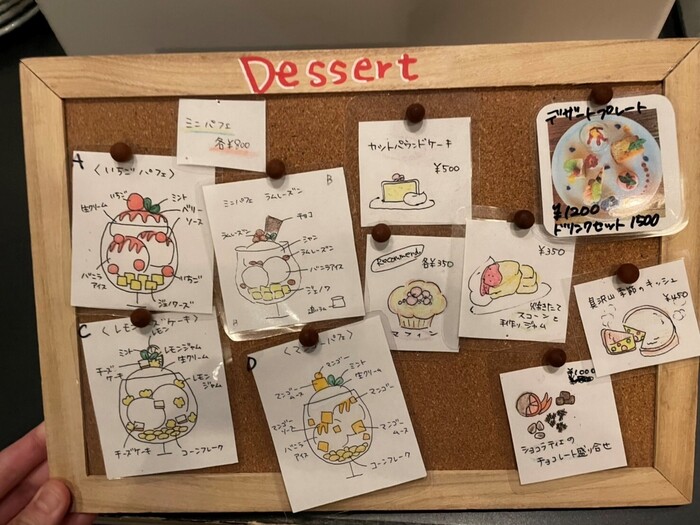 Dessert
ミニパフェ
各¥900
A
〈いちごパフェ〉
いちご
ミント
生クリーム
ベリー
ソース
バニラ
アイス
いちご
B
ミニパフェ ラムレーズン
チョコ
ラムレーズン
ラムレーズン
バニラアイス
ジェノワ
カットパウンドケーキ
¥500
デザートプレート
¥1200
ドリンクセット 1500
Recommend
各¥350
マフィン
¥350
焼きたて
スコーンと
手作りジャム
季節のキッシュ
¥450
C
レモン
ケーキ〉
レモン
ミント
レモンジャム
生クリーム
チーズ
ケーキ
レモン
ジャム
チーズケーキ
コーンフレーク
D
パフェ〉
マンゴー
ミント
生クリーム
マンゴー
マンゴー
マンゴー
マンゴー
ムース
バニラ
アイス
コーンフレーク
¥1000
ショコラティエの
チョコレート盛り合せ